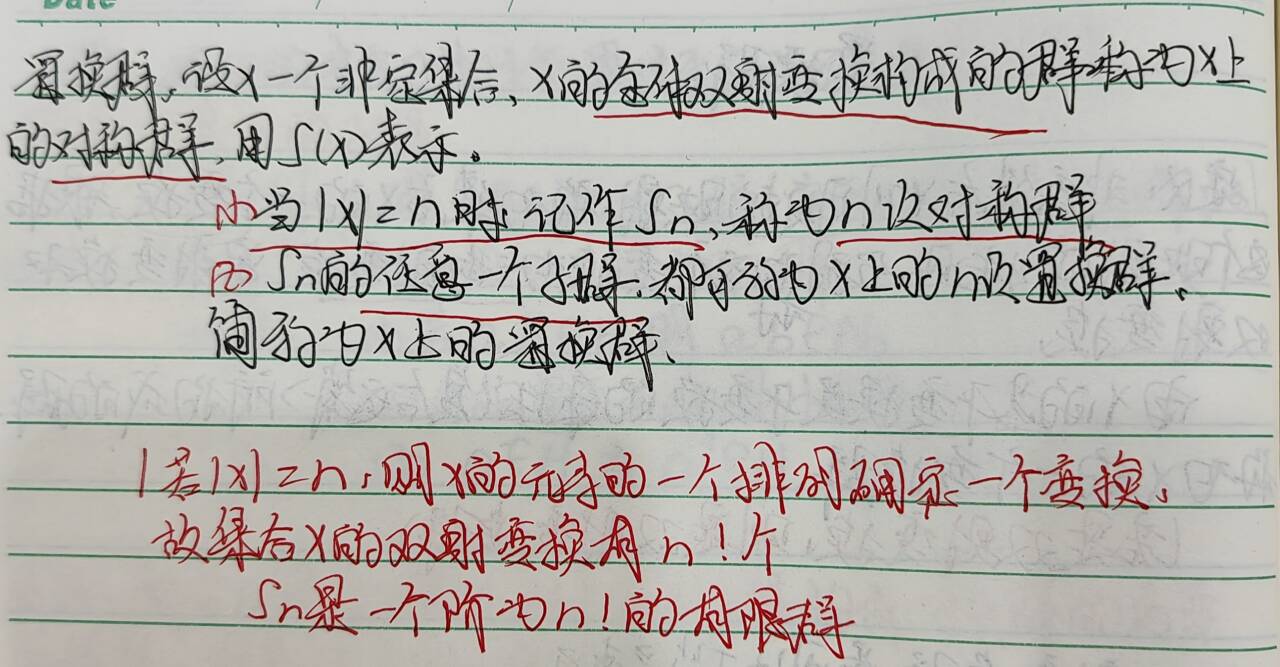 Date
置换群、设X一个非空集合、X的全体双射变换构成的群称为X上
的对称群、用S(X)表示。
(1) 当|X|=n时、记作Sn、称为n次对称群
(2) Sn的任意一个子群、都可称为X上的n次置换群、
简称为X上的置换群、
|若|X|=n、则X的元素的一个排列确定一个变换、
故集合X的双射变换有n!个
Sn是一个阶为n!的有限群